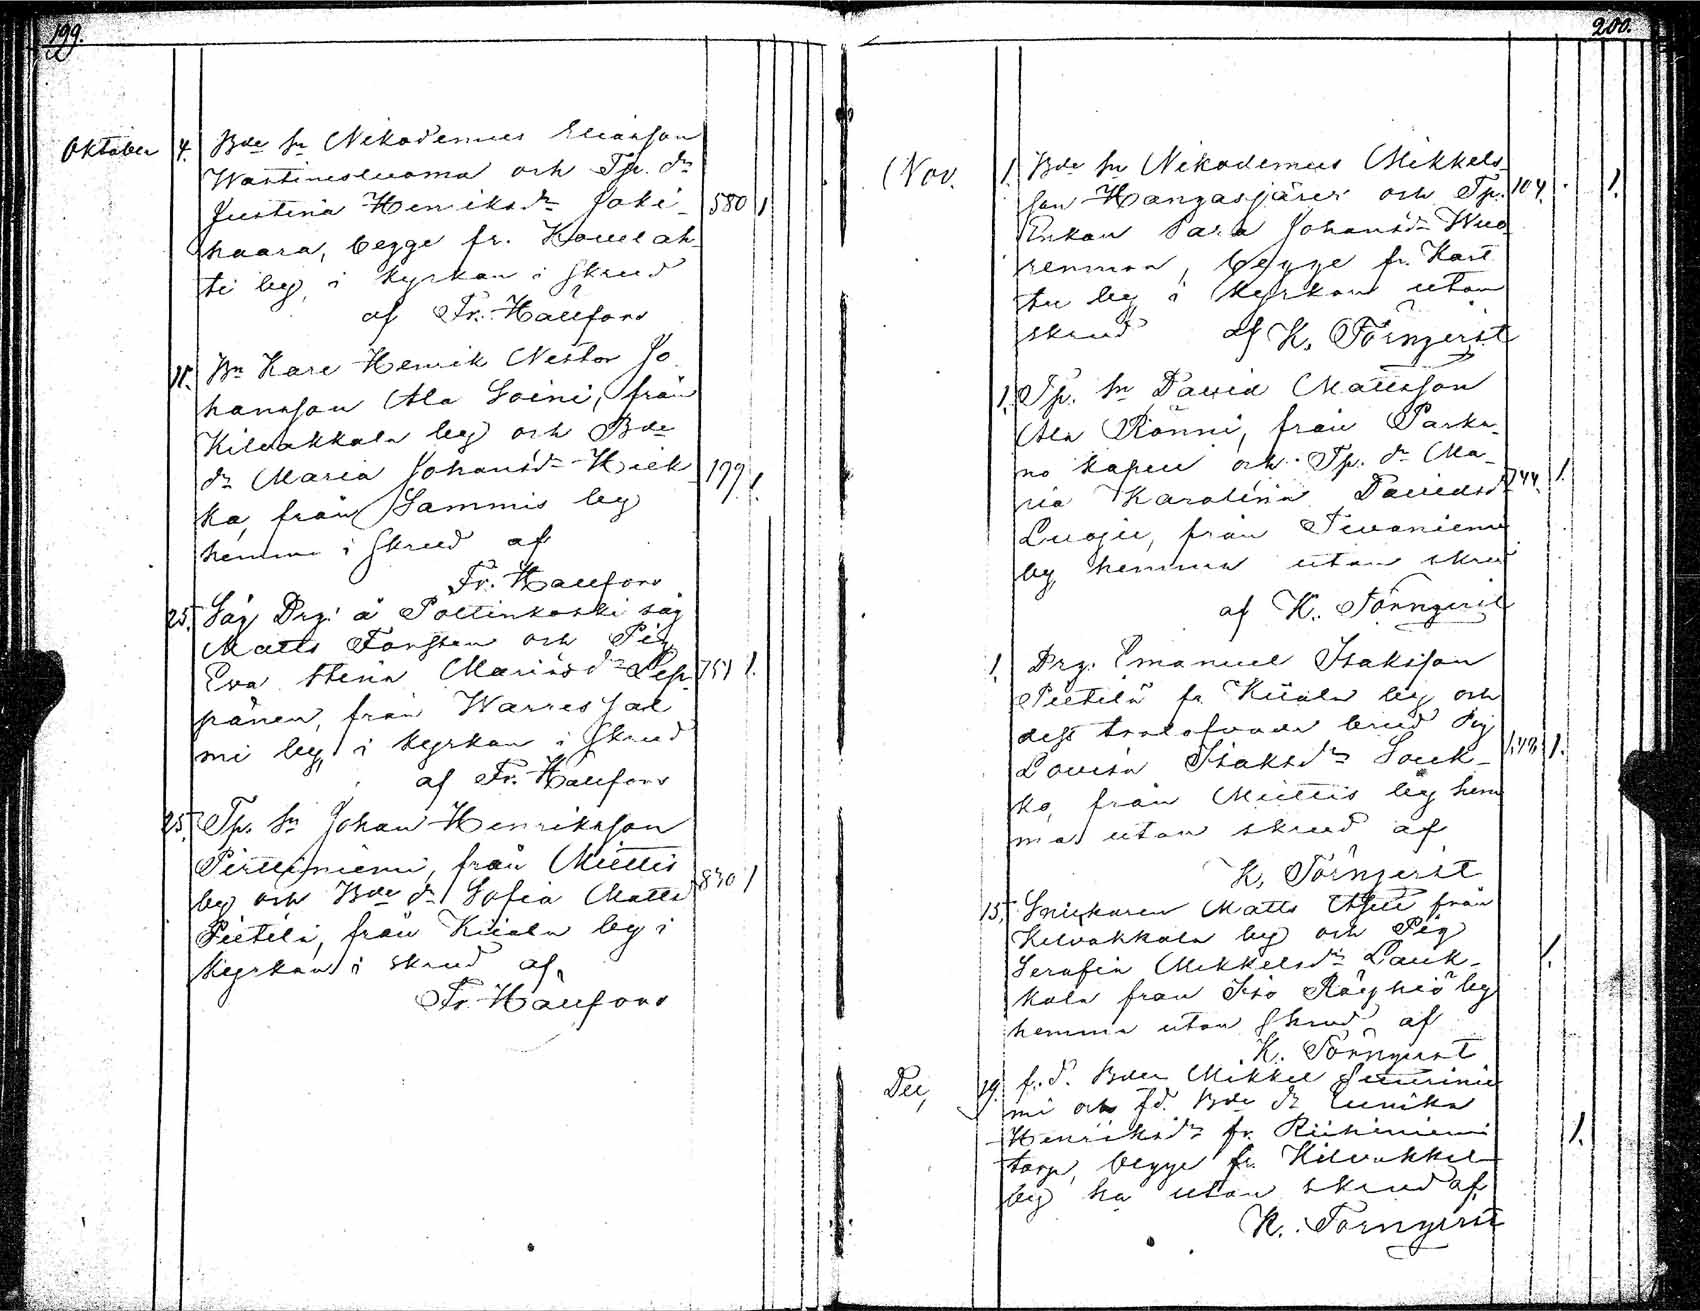 199.
Oktober 4. Bde Sn Nikodemus Eliasson
Wastinesluoma och Tp. dr
Justina Henriksdr Joki-
haara, begge fr. Kovelah- 580 1
ti by, i kyrkan i skrud
af Fr. Hällfors
11. Bn Karl Henrik Nestor Jo
hansson Ala Soini, från
Kilvakkala by och Bde
dr Maria Johansdr Hiek 199 1.
ka, från Sammis by
hemma i skrud af
Fr. Hällfors
25. Såg Drg: å Poltinkoski såg
Matts Forsten och Pig
Eva Stina Mariasdr Lep- 751 1.
pänen, från Warresjal
mi by, i kyrkan i skrud
af Fr. Hällfors
25. Tp. Sn Johan Henriksson
Pirttiniemi, från Miettis
by och Bde dr Sofia Matts 830 1
Pietilä, från Kiiala by i
kyrkan i skrud af
Fr. Hällfors
200.
Nov. 1. Bde Sn Nikodemus Mikkels
son Hangasjärvi och Tp. 104. 1.
Enkan Sara Johansdr Wuo
renmaa, begge fr. Kart
tu by i kyrkan utan
skrud af K. Törnqvist
1. Tp. Sn David Mattsson
Ala Rönni, från Parka-
no kapell och Tp. dr Ma-
ria Karolina Davidsdr 744. 1.
Luoju, från Tevaniemi
by hemma utan skrud
af K. Törnqvist
1. Drg. Emanuel Isaksson
Pietilä fr Kiiala by och
dess trolofvade brud Pig
Lovisa Isaksdr Souk- 1.
ko, från Miettis by hem
ma utan skrud af
K. Törnqvist
15. Snickaren Matts från
Kilvakkala by och Pig
Serafia Mikkelsdr Lauk- 1.
kala från Iso Röyhiö by
hemma utan skrud af
K. Törnqvist
Dec, 29. f.d. Bden Mikkel
mi och fd. Bde dr Eunika
Henriksdr fr. Riihiniemi 1.
torp, begge fr. Kilvakkal
by ha utan skrud af
K. Törnqvist